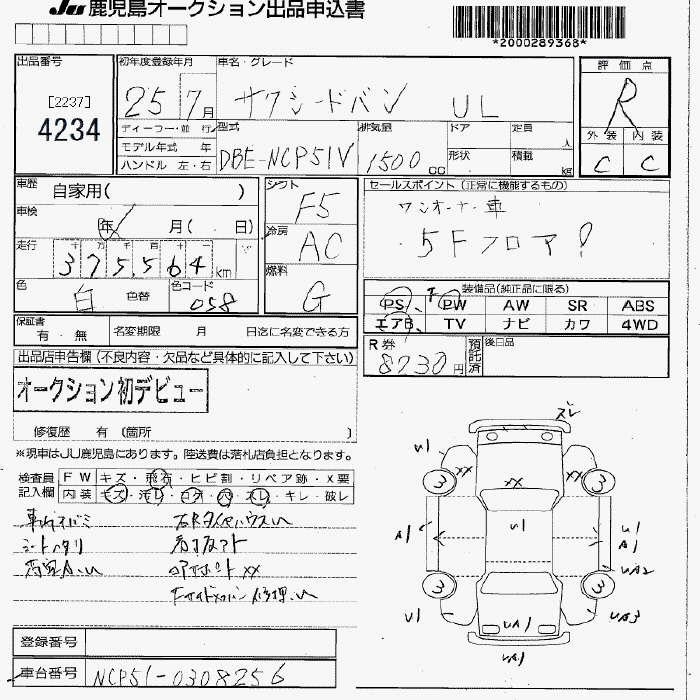 JU 鹿児島オークション出品申込書
*2000289368*
出品番号
[2237]
4234
初年度登録年月
25 7月
車名・グレード
サクシードバン UL
評価点
R
外装 内装
C C
ディーラー・並行
モデル年式 年
ハンドル 左・右
型式
DBE-NCP51V
排気量
1500cc
ドア
形状
定員
人
積載
kg
車歴
自家用( )
車検
年 月( . 日)
走行
十 万 千 百 十 一
375,564km
色
白
色替
色コード
058
シフト
F5
冷房
AC
燃料
G
セールスポイント(正常に機能するもの)
ワンオーナー車
5Fフロア!
装備品(純正品に限る)
PS、 PW AW SR ABS
エアB、 TV ナビ カワ 4WD
保証書
有・無
名変期限 月 日迄に名変できる方
R券
8230円
預託済
後日品
出品店申告欄(不良内容・欠品など具体的に記入して下さい)
オークション初デビュー
修復歴 有(箇所 )
※現車はJU鹿児島にあります。陸送費は落札店負担となります。
検査員記入欄
FW キズ・飛石・ヒビ割・リペア跡・X要
内装 キズ・汚れ・コゲ・穴・スレ・キレ・破レ
シートヘタリ
ズレ
U1
XX XX XX
3 3
U1
A1
U1
A1
UA2
3 3
U1
UA1
UA3
UA1
登録番号
車台番号
NCP51-0308256